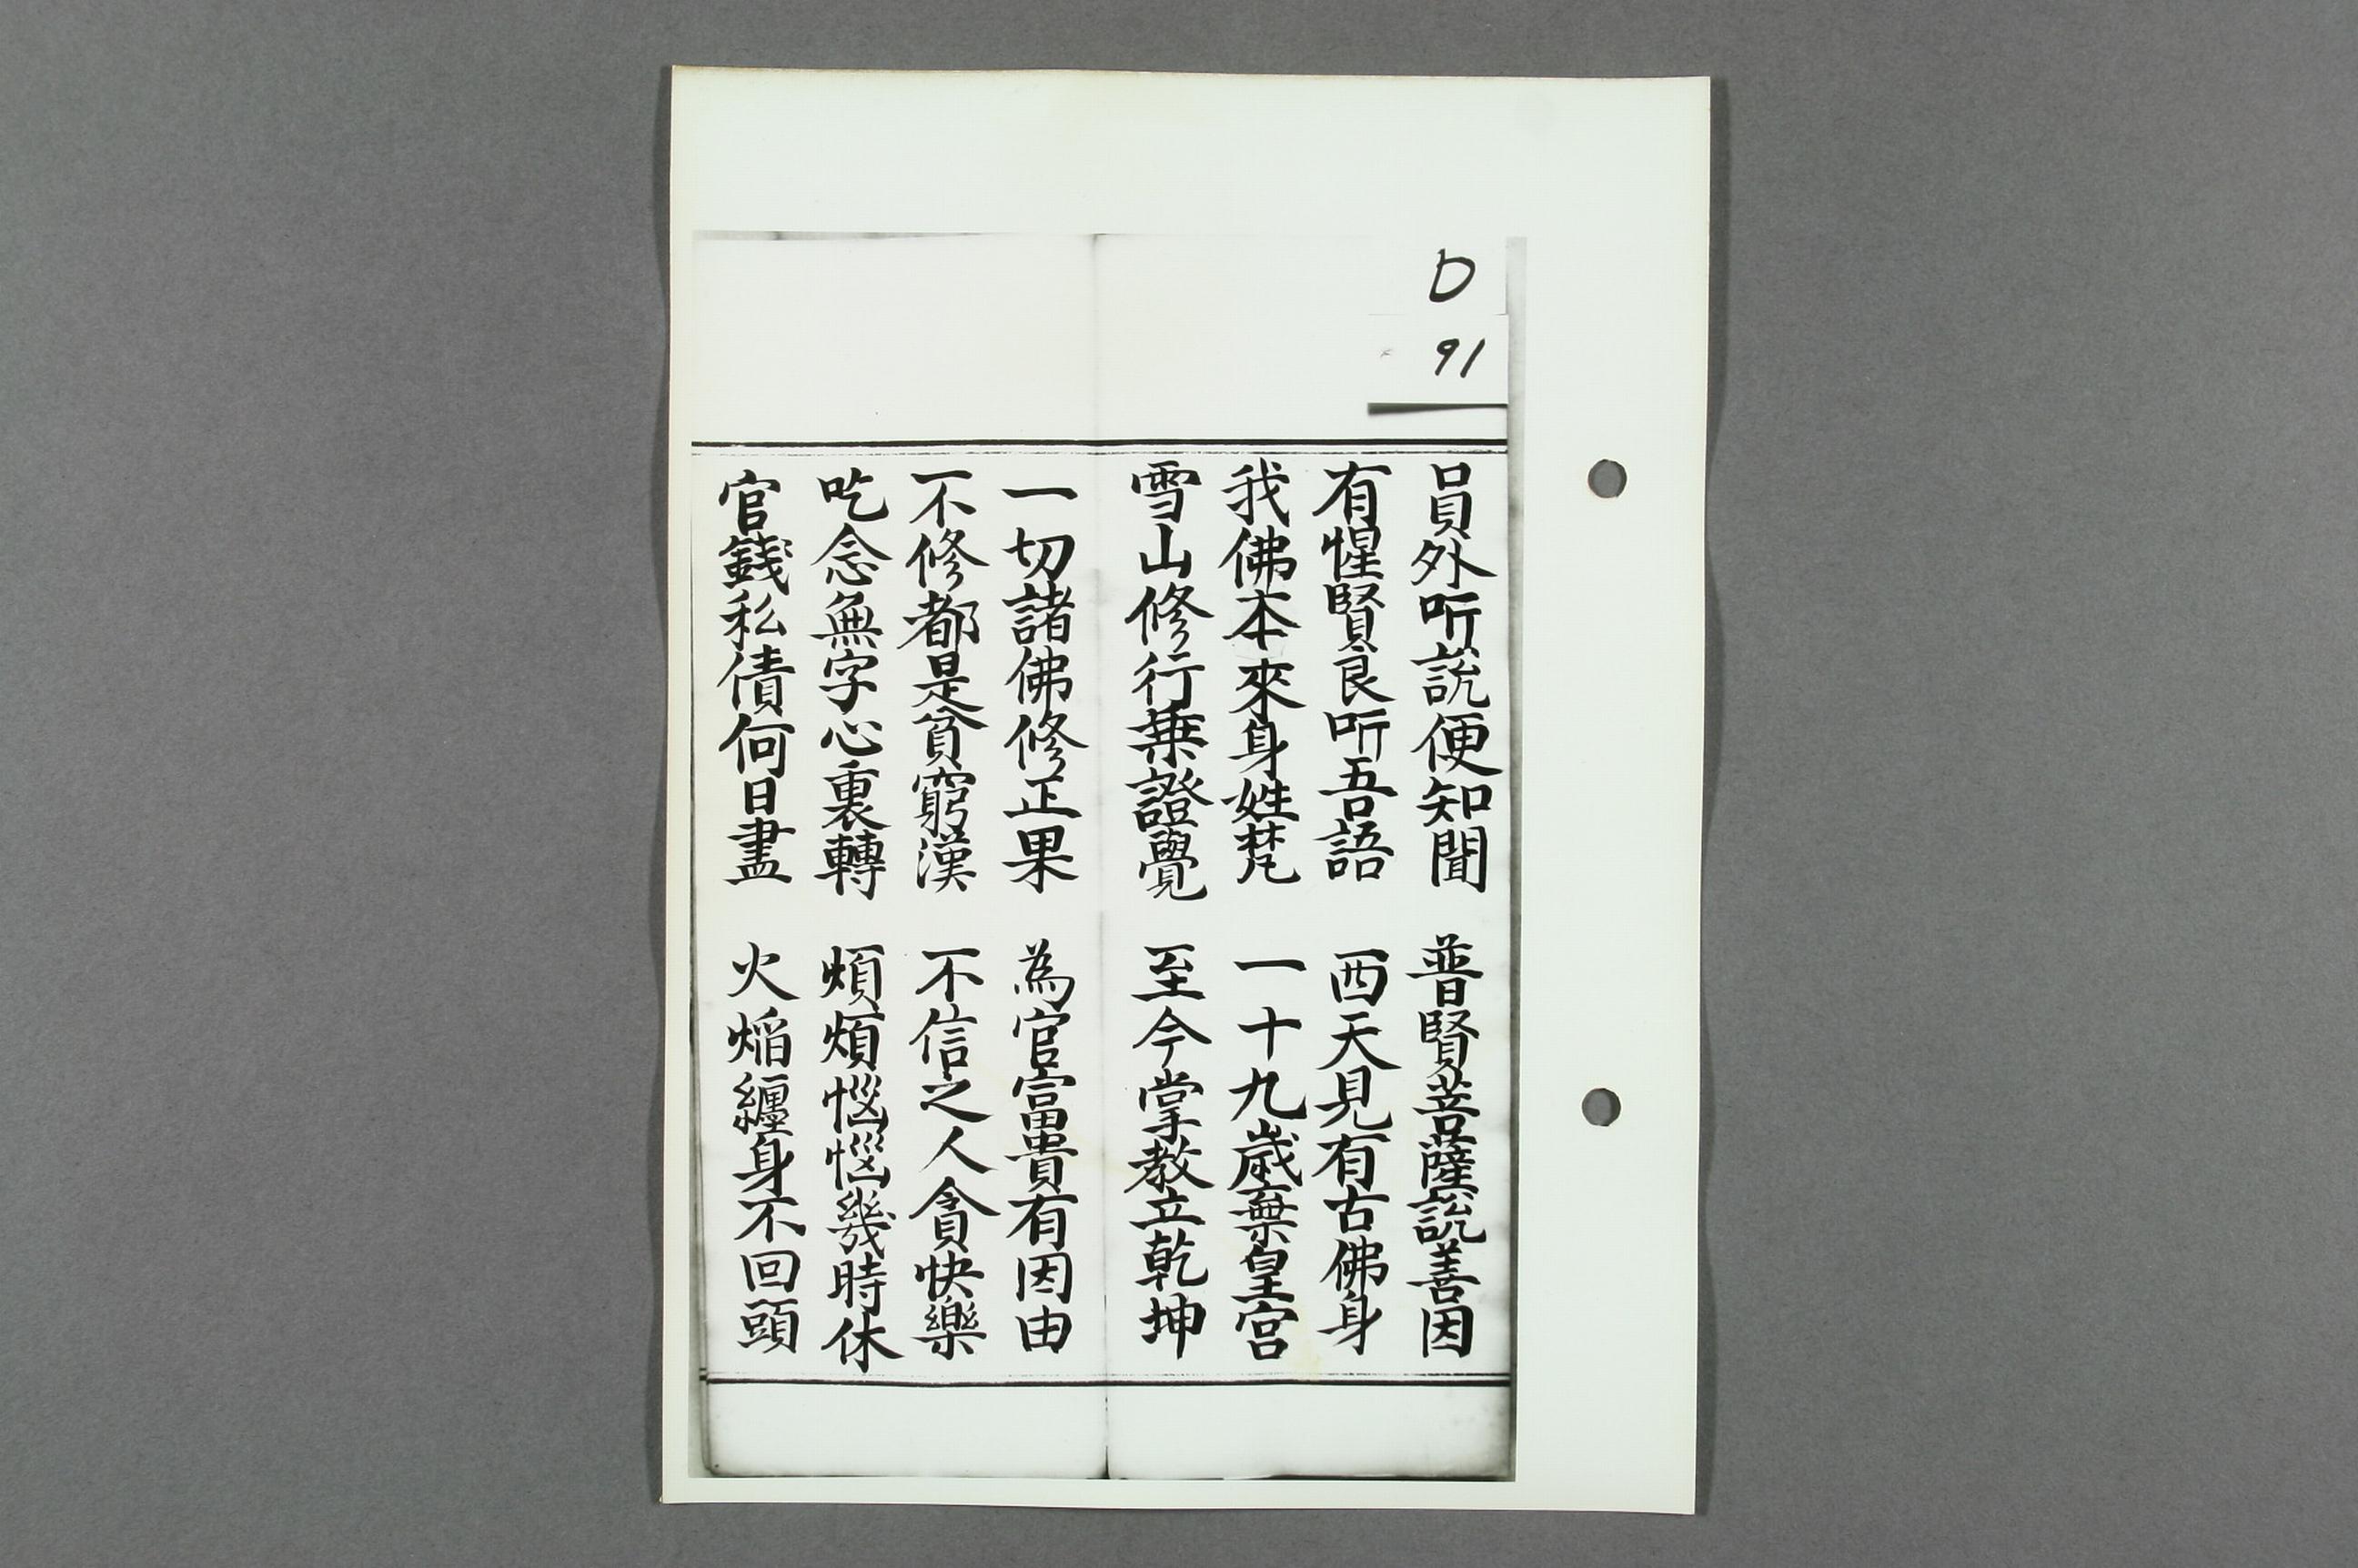 D
91
員外听說便知聞　普賢菩薩說善因
有惺賢良听吾語　西天見有古佛身
我佛本來身姓梵　一十九歲棄皇宮
雪山修行乗證覺　至今掌教立乾坤
一切諸佛修正果　為官富貴有因由
不修都是貧窮漢　不信之人貪快樂
吃念無字心裏轉　煩煩惱惱幾時休
官錢私債何日盡　火焰纏身不回頭